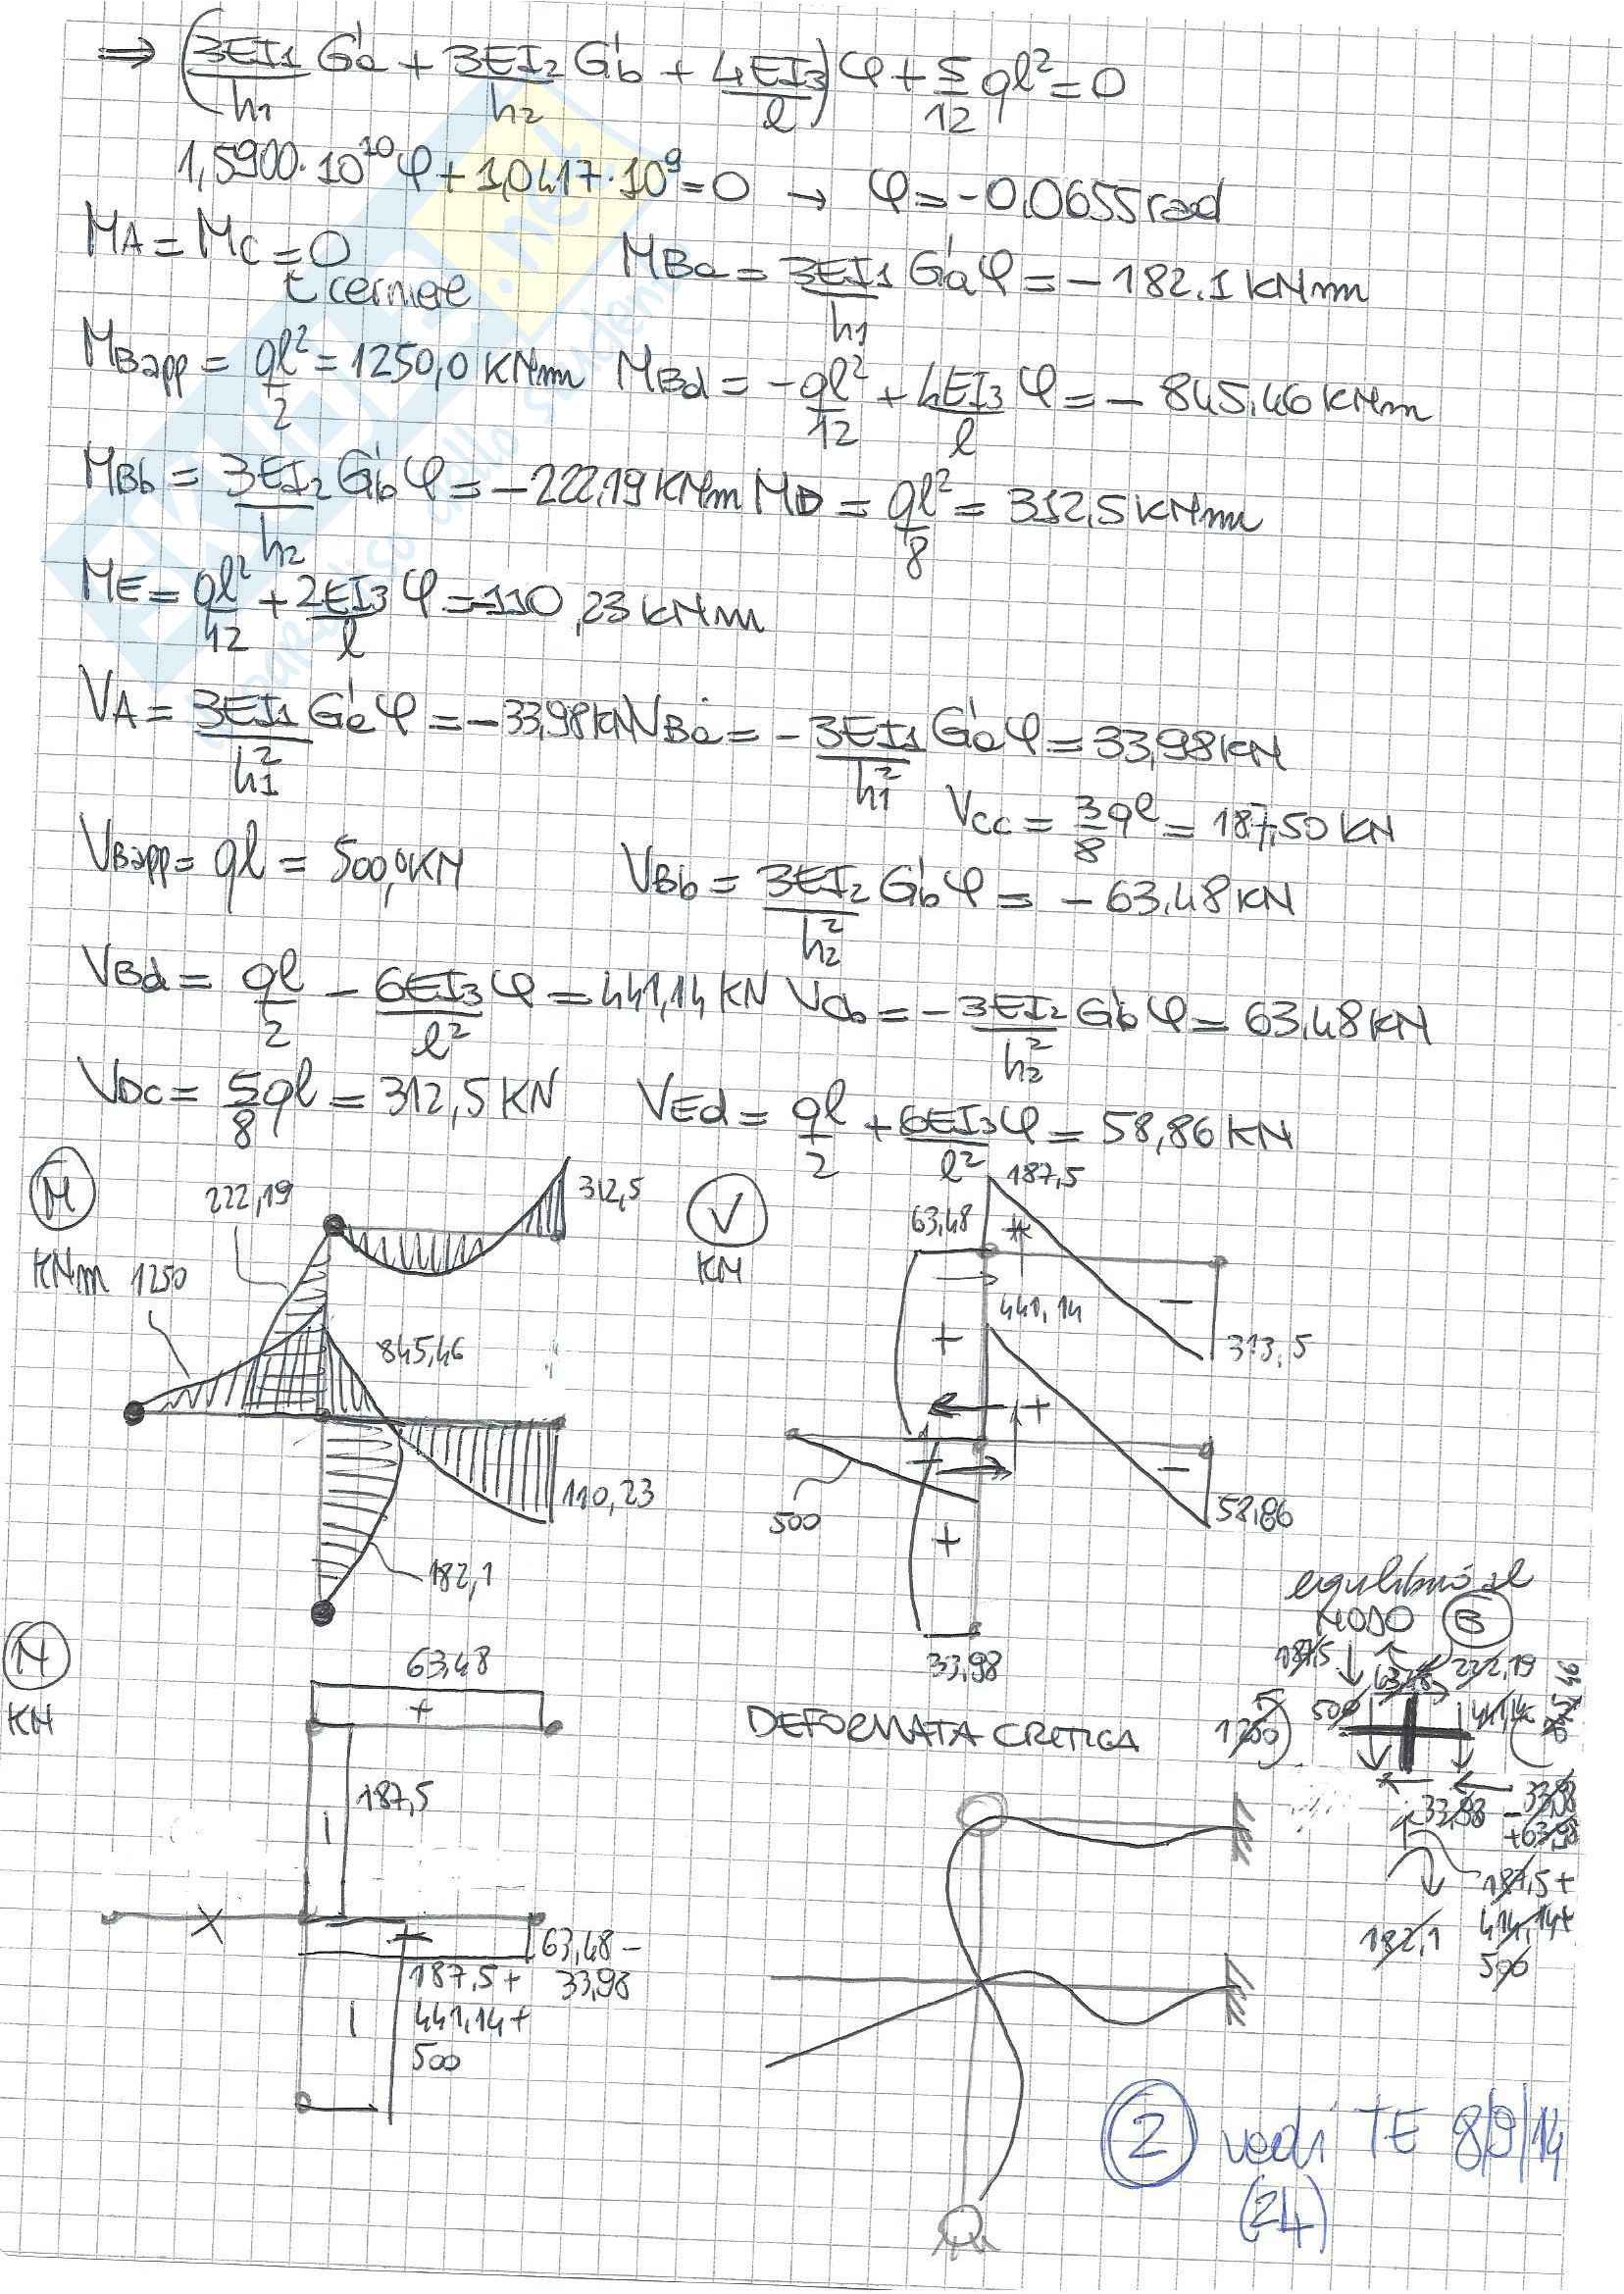 ⇒ (3EI1/h1 G'a + 3EI2/h2 G'b + 4EI3/l) φ + 5/12 ql² = 0
1,5900·10¹⁰ φ + 1,0417·10⁹ = 0 → φ = -0,0655 rad
MA = MC = 0
t cerniere
MBa = 3EI1/h1 G'a φ = -182.1 kNm
MBapp = ql²/2 = 1250,0 kNm MBd = -ql²/12 + 4EI3/l φ = -845,46 kNm
MBb = 3EI2/h2 G'b φ = -222,19 kNm MD = ql²/8 = 312,5 kNm
ME = ql²/12 + 2EI3/l φ = -110,23 kNm
VA = 3EI1/h1² G'a φ = -33,98 kN VBa = -3EI1/h1² G'a φ = 33,98 kN
Vcc = 3/8 ql = 187,50 kN
VBapp = ql = 500,0 kN VBb = 3EI2/h2² G'b φ = -63,48 kN
VBd = ql/2 - 6EI3/l² φ = 441,14 kN Vcb = -3EI2/h2² G'b φ = 63,48 kN
VDC = 5/8 ql = 312,5 kN VEd = ql/2 + 6EI3/l² φ = 58,86 kN
M
kNm
222,19
312,5
1250
845,46
110,23
182,1
V
kN
187,5
63,48
+
441,14
-
313,5
+
+
+
-
500
58,86
+
33,98
N
kN
63,48
+
187,5
-
X
63,48 -
33,98
187,5 +
441,14 +
500
-
equilibrio al
NODO B
187,5
63,48
222,19
500
441,14
1250
33,98
-33,98
+63,98
187,5 +
414,14 +
500
182,1
DEFORMATA CRITICA
2 vedi TE 8/9/14
(24)
.net